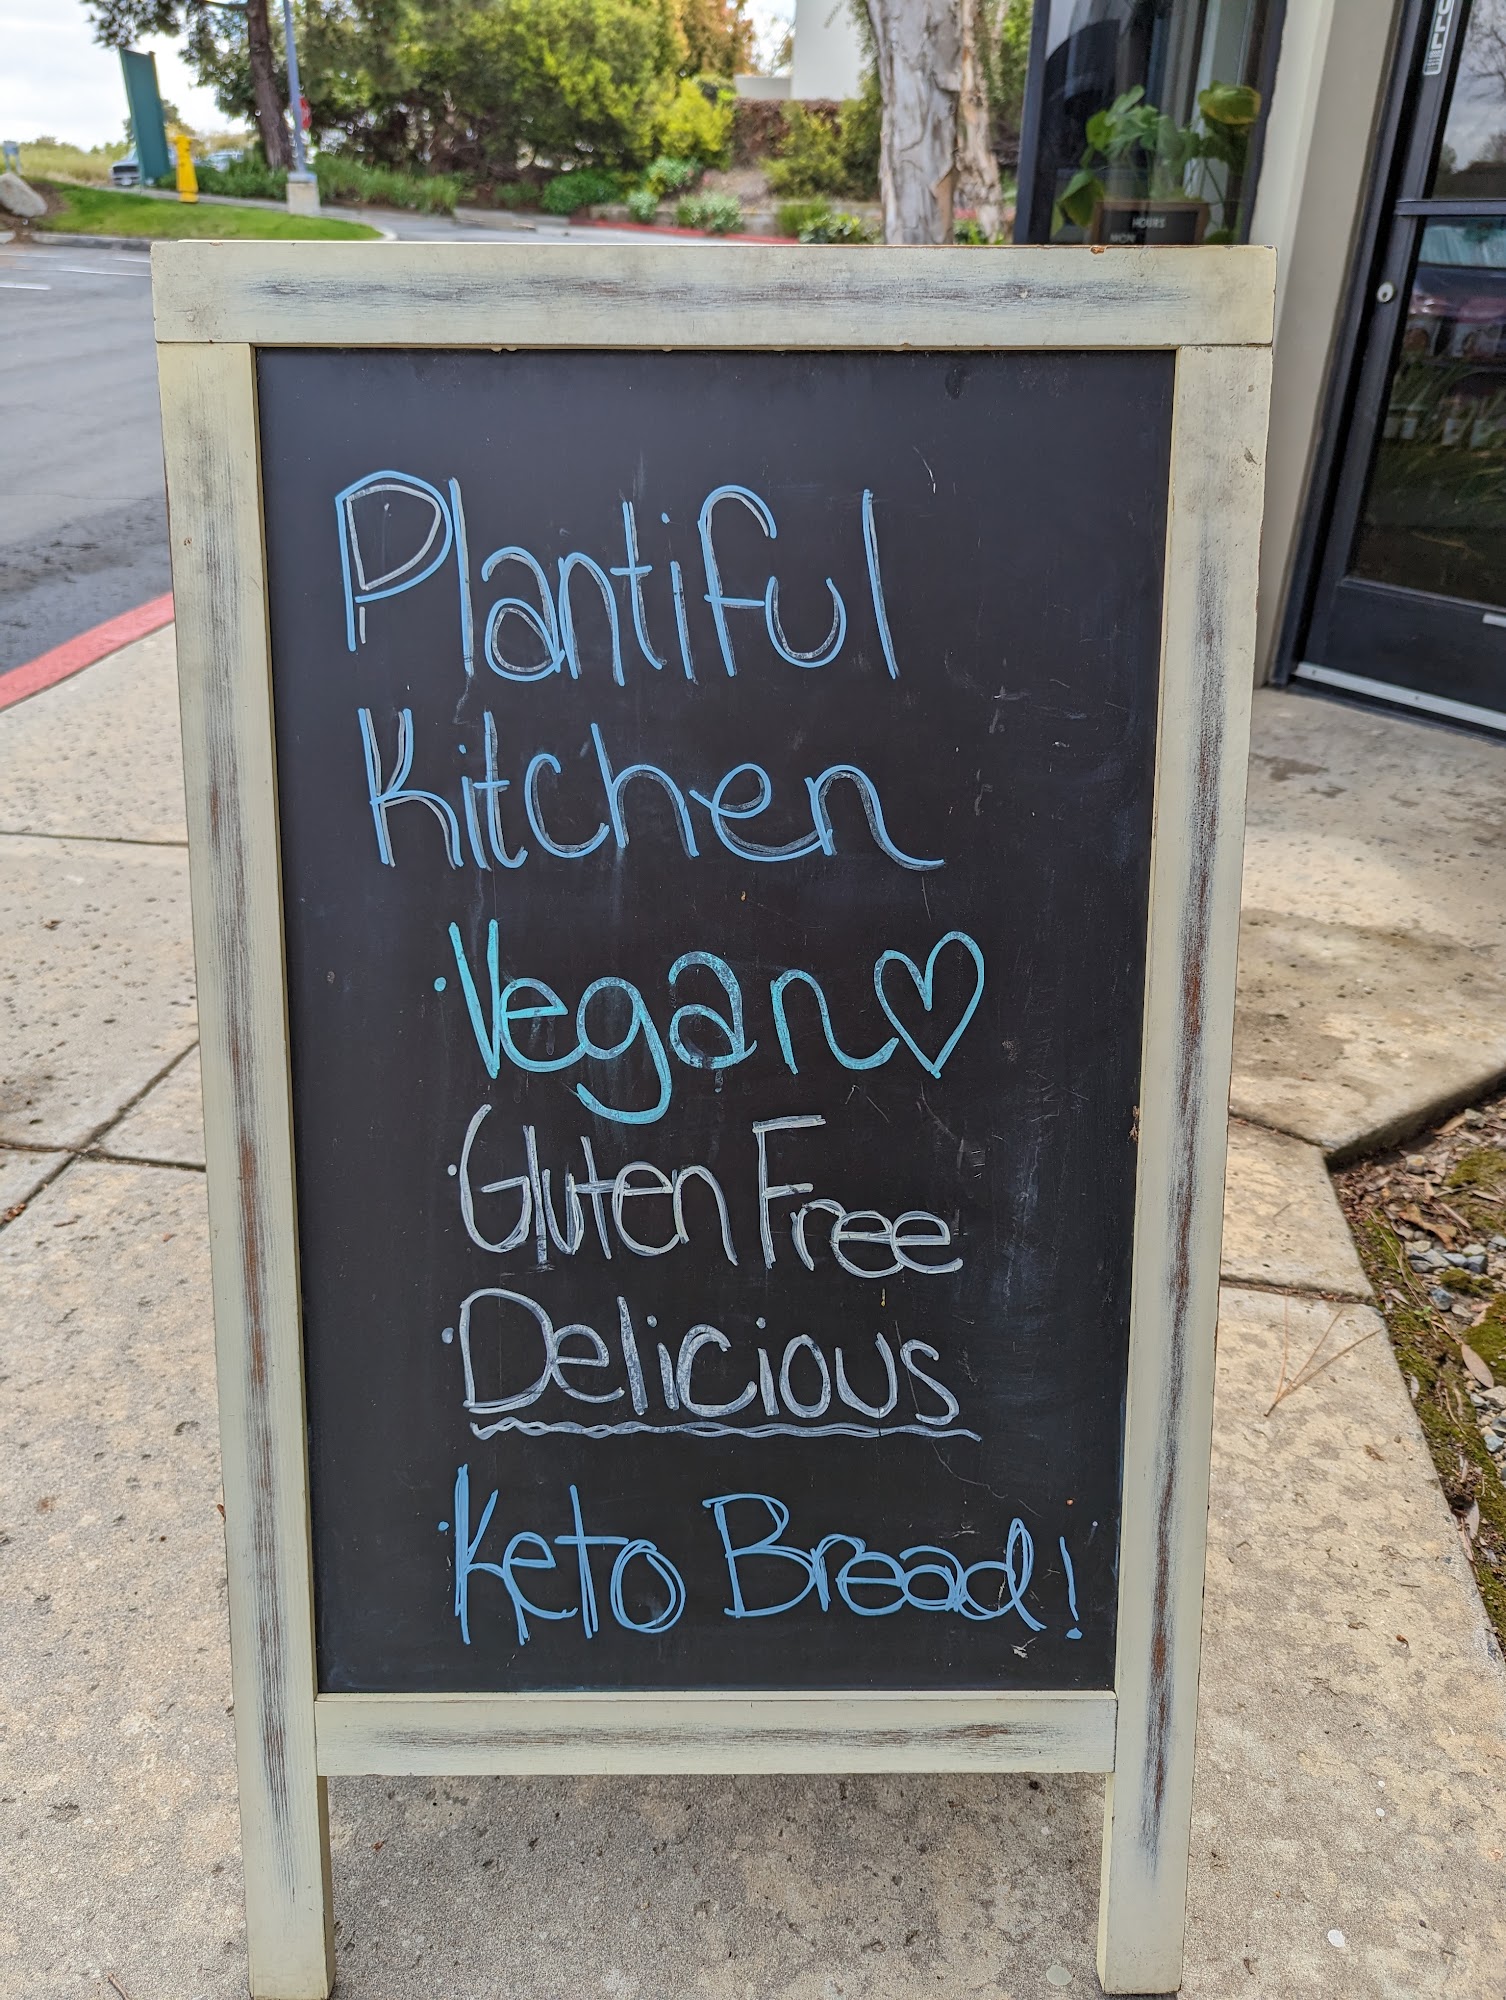 Plantiful
Kitchen
· Vegan ♡
· Gluten Free
· Delicious
· Keto Bread!
HOURS
MON